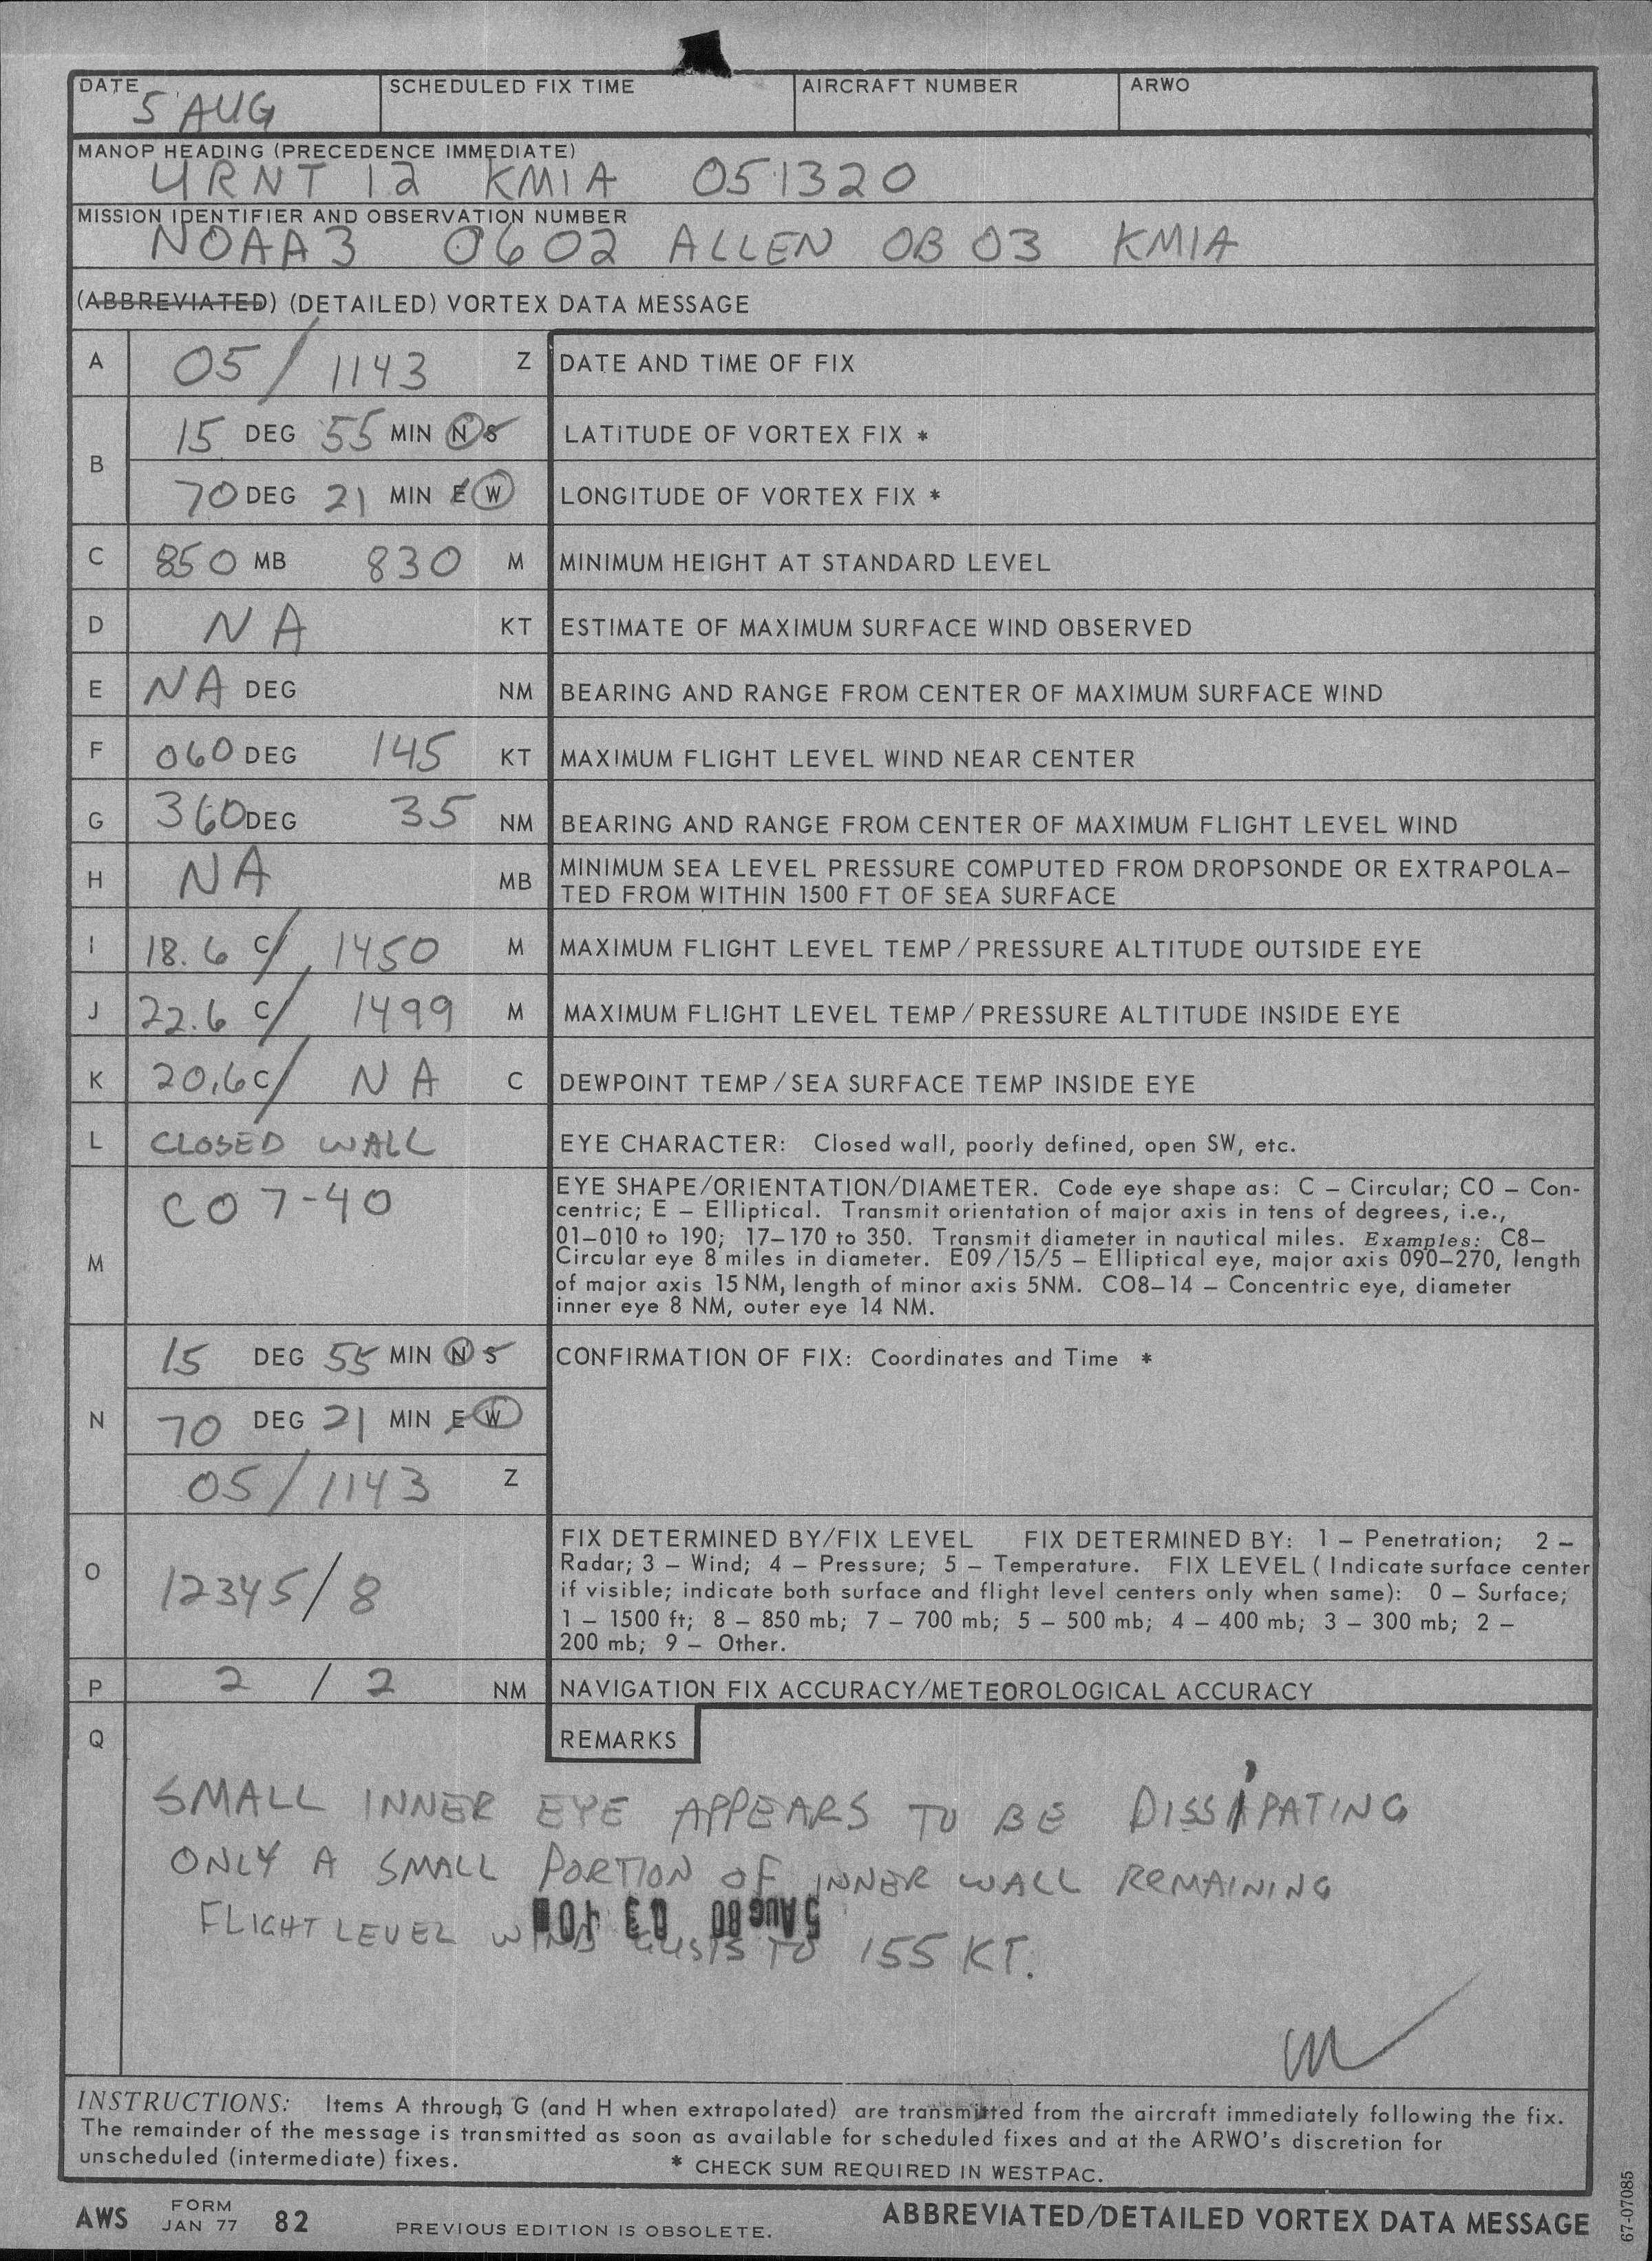 DATE SCHEDULED FIX TIME AIRCRAFT NUMBER ARWO
5 AUG
MANOP HEADING (PRECEDENCE IMMEDIATE)
URNT 12 KMIA 051320
MISSION IDENTIFIER AND OBSERVATION NUMBER
NOAA3 0602 ALLEN OB 03 KMIA
(ABBREVIATED) (DETAILED) VORTEX DATA MESSAGE
A 05 / 1143 Z DATE AND TIME OF FIX
B 15 DEG 55 MIN N S LATITUDE OF VORTEX FIX *
70 DEG 21 MIN E W LONGITUDE OF VORTEX FIX *
C 850 MB 830 M MINIMUM HEIGHT AT STANDARD LEVEL
D NA KT ESTIMATE OF MAXIMUM SURFACE WIND OBSERVED
E NA DEG NM BEARING AND RANGE FROM CENTER OF MAXIMUM SURFACE WIND
F 060 DEG 145 KT MAXIMUM FLIGHT LEVEL WIND NEAR CENTER
G 360 DEG 35 NM BEARING AND RANGE FROM CENTER OF MAXIMUM FLIGHT LEVEL WIND
H NA MB MINIMUM SEA LEVEL PRESSURE COMPUTED FROM DROPSONDE OR EXTRAPOLA-
TED FROM WITHIN 1500 FT OF SEA SURFACE
I 18.6 C/ 1450 M MAXIMUM FLIGHT LEVEL TEMP/PRESSURE ALTITUDE OUTSIDE EYE
J 22.6 C/ 1499 M MAXIMUM FLIGHT LEVEL TEMP/PRESSURE ALTITUDE INSIDE EYE
K 20.6 C/ NA C DEWPOINT TEMP/SEA SURFACE TEMP INSIDE EYE
L CLOSED WALL EYE CHARACTER: Closed wall, poorly defined, open SW, etc.
M CO 7-40 EYE SHAPE/ORIENTATION/DIAMETER. Code eye shape as: C – Circular; CO – Con-
centric; E – Elliptical. Transmit orientation of major axis in tens of degrees, i.e.,
01–010 to 190; 17–170 to 350. Transmit diameter in nautical miles. Examples: C8–
Circular eye 8 miles in diameter. E09/15/5 – Elliptical eye, major axis 090–270, length
of major axis 15 NM, length of minor axis 5NM. CO8–14 – Concentric eye, diameter
inner eye 8 NM, outer eye 14 NM.
N 15 DEG 55 MIN N S CONFIRMATION OF FIX: Coordinates and Time *
70 DEG 21 MIN E W
05 / 1143 Z
O 12345/8 FIX DETERMINED BY/FIX LEVEL FIX DETERMINED BY: 1 – Penetration; 2 –
Radar; 3 – Wind; 4 – Pressure; 5 – Temperature. FIX LEVEL (Indicate surface center
if visible; indicate both surface and flight level centers only when same): 0 – Surface;
1 – 1500 ft; 8 – 850 mb; 7 – 700 mb; 5 – 500 mb; 4 – 400 mb; 3 – 300 mb; 2 –
200 mb; 9 – Other.
P 2 / 2 NM NAVIGATION FIX ACCURACY/METEOROLOGICAL ACCURACY
Q REMARKS
SMALL INNER EYE APPEARS TO BE DISSIPATING
ONLY A SMALL PORTION OF INNER WALL REMAINING
5 Aug 80
FLIGHT LEVEL WIND GUSTS TO 155 KT.
INSTRUCTIONS: Items A through G (and H when extrapolated) are transmitted from the aircraft immediately following the fix.
The remainder of the message is transmitted as soon as available for scheduled fixes and at the ARWO's discretion for
unscheduled (intermediate) fixes. * CHECK SUM REQUIRED IN WESTPAC.
AWS FORM JAN 77 82 PREVIOUS EDITION IS OBSOLETE. ABBREVIATED/DETAILED VORTEX DATA MESSAGE
67-07085